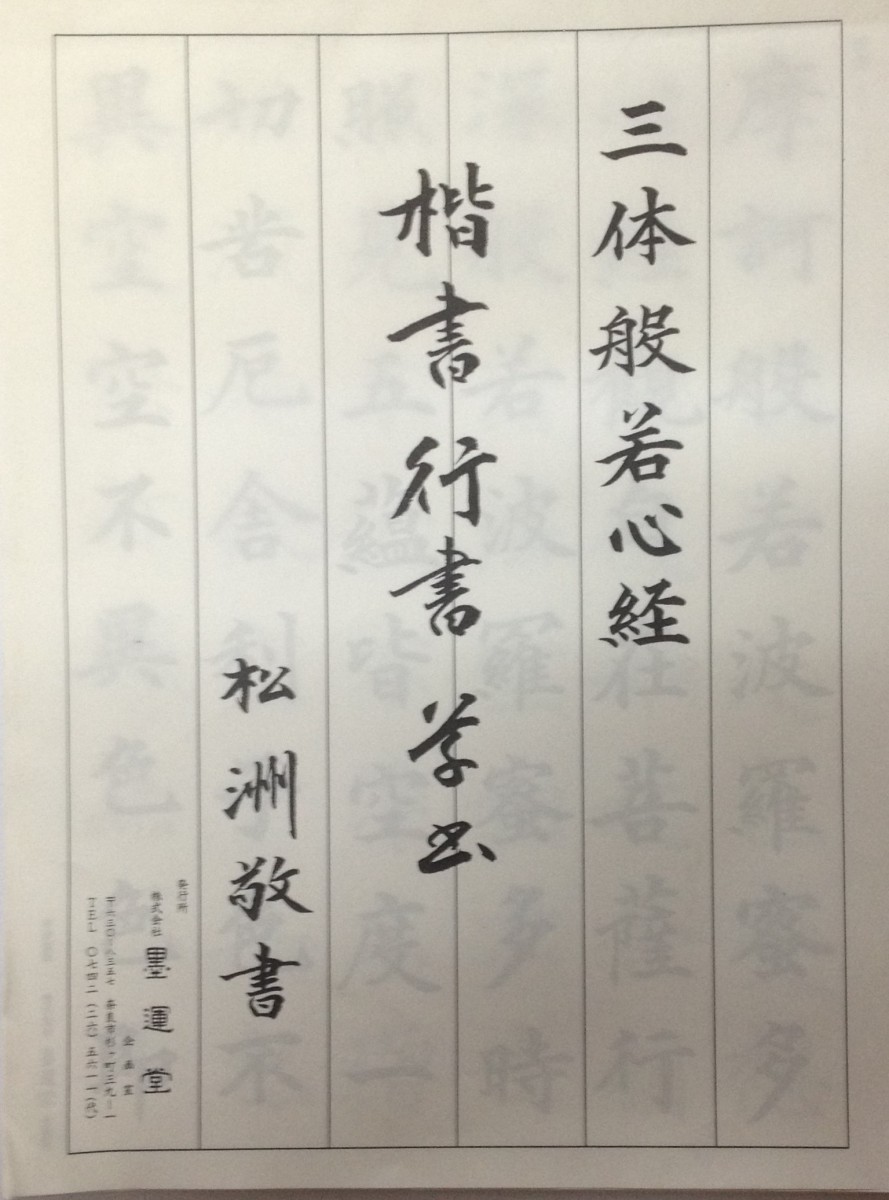 三体般若心経
楷書 行書 草書
松洲敬書
発行所
株式会社 墨運堂
企画室
〒六三〇-八三五七 奈良市杉ヶ町三九-一
TEL 〇七四二(二六)五六一一(代)